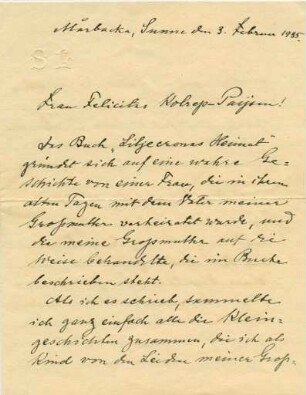 Mårbacka, Sunne den 3. Februar 1935.
SL
Frau Felicitas
Das Buch „Liljecronas Heimat“
gründet sich auf eine wahre Ge-
schichte von einer Frau, die in ihren
alten Tagen mit dem Vater meiner
Großmutter verheiratet wurde, und
die meine Großmutter auf die
Weise behandelte, die im Buche
beschrieben steht.
Als ich es schrieb, sammelte
ich ganz einfach alle die Klein-
geschichten zusammen, die ich als
Kind von den Leiden meiner Groß-